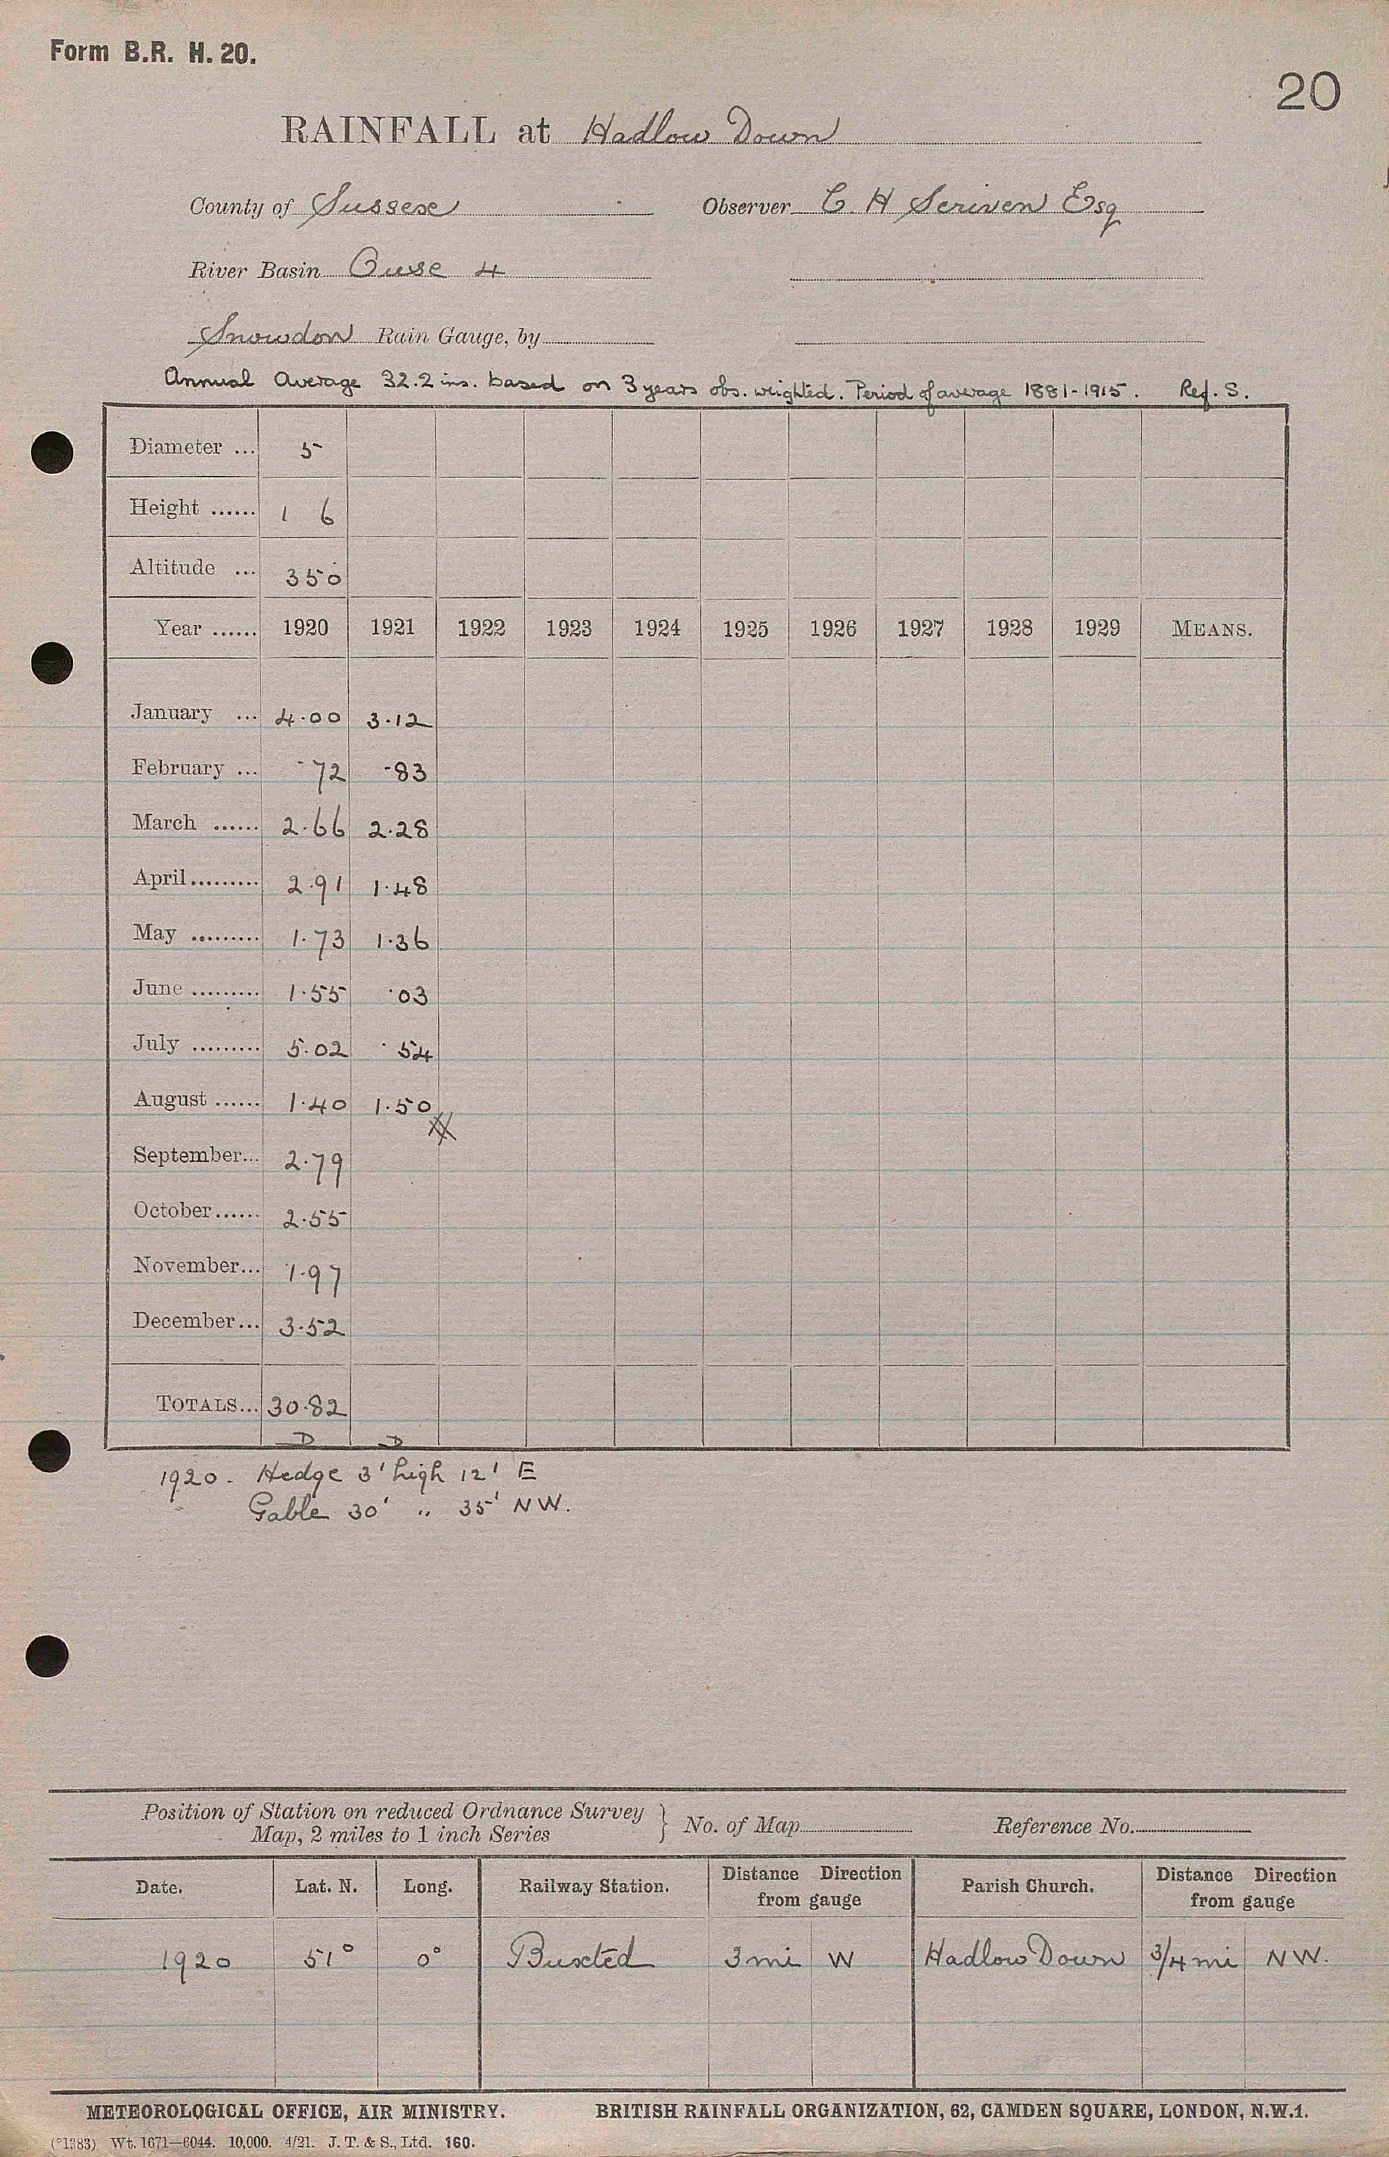 Form B.R. H. 20.
20
RAINFALL at Hadlow Down
County of Sussex Observer C. H Scriven Esq
River Basin Ouse 4
Snowdon Rain Gauge, by
Annual Average 32.2 ins. based on 3 years obs. weighted. Period of average 1881-1915. Ref. S.
Diameter ... 5
Height ...... 1 6
Altitude ... 350
Year ...... 1920 1921 1922 1923 1924 1925 1926 1927 1928 1929 MEANS.
January ... 4.00 3.12
February ... .72 .83
March ...... 2.66 2.28
April ......... 2.91 1.48
May ......... 1.73 1.36
June ......... 1.55 .03
July ......... 5.02 .54
August ...... 1.40 1.50
September... 2.79
October ...... 2.55
November... 1.97
December... 3.52
TOTALS... 30.82
D D
1920 - Hedge 3' high 12' E
Gable 30' " 35' NW.
Position of Station on reduced Ordnance Survey
Map, 2 miles to 1 inch Series } No. of Map Reference No.
Date. Lat. N. Long. Railway Station. Distance Direction from gauge Parish Church. Distance Direction from gauge
1920 51° 0° Buxted 3 mi W Hadlow Down 3/4 mi NW.
METEOROLOGICAL OFFICE, AIR MINISTRY. BRITISH RAINFALL ORGANIZATION, 62, CAMDEN SQUARE, LONDON, N.W.1.
(*1383) Wt. 1671—6044. 10,000. 4/21. J. T. & S., Ltd. 160.